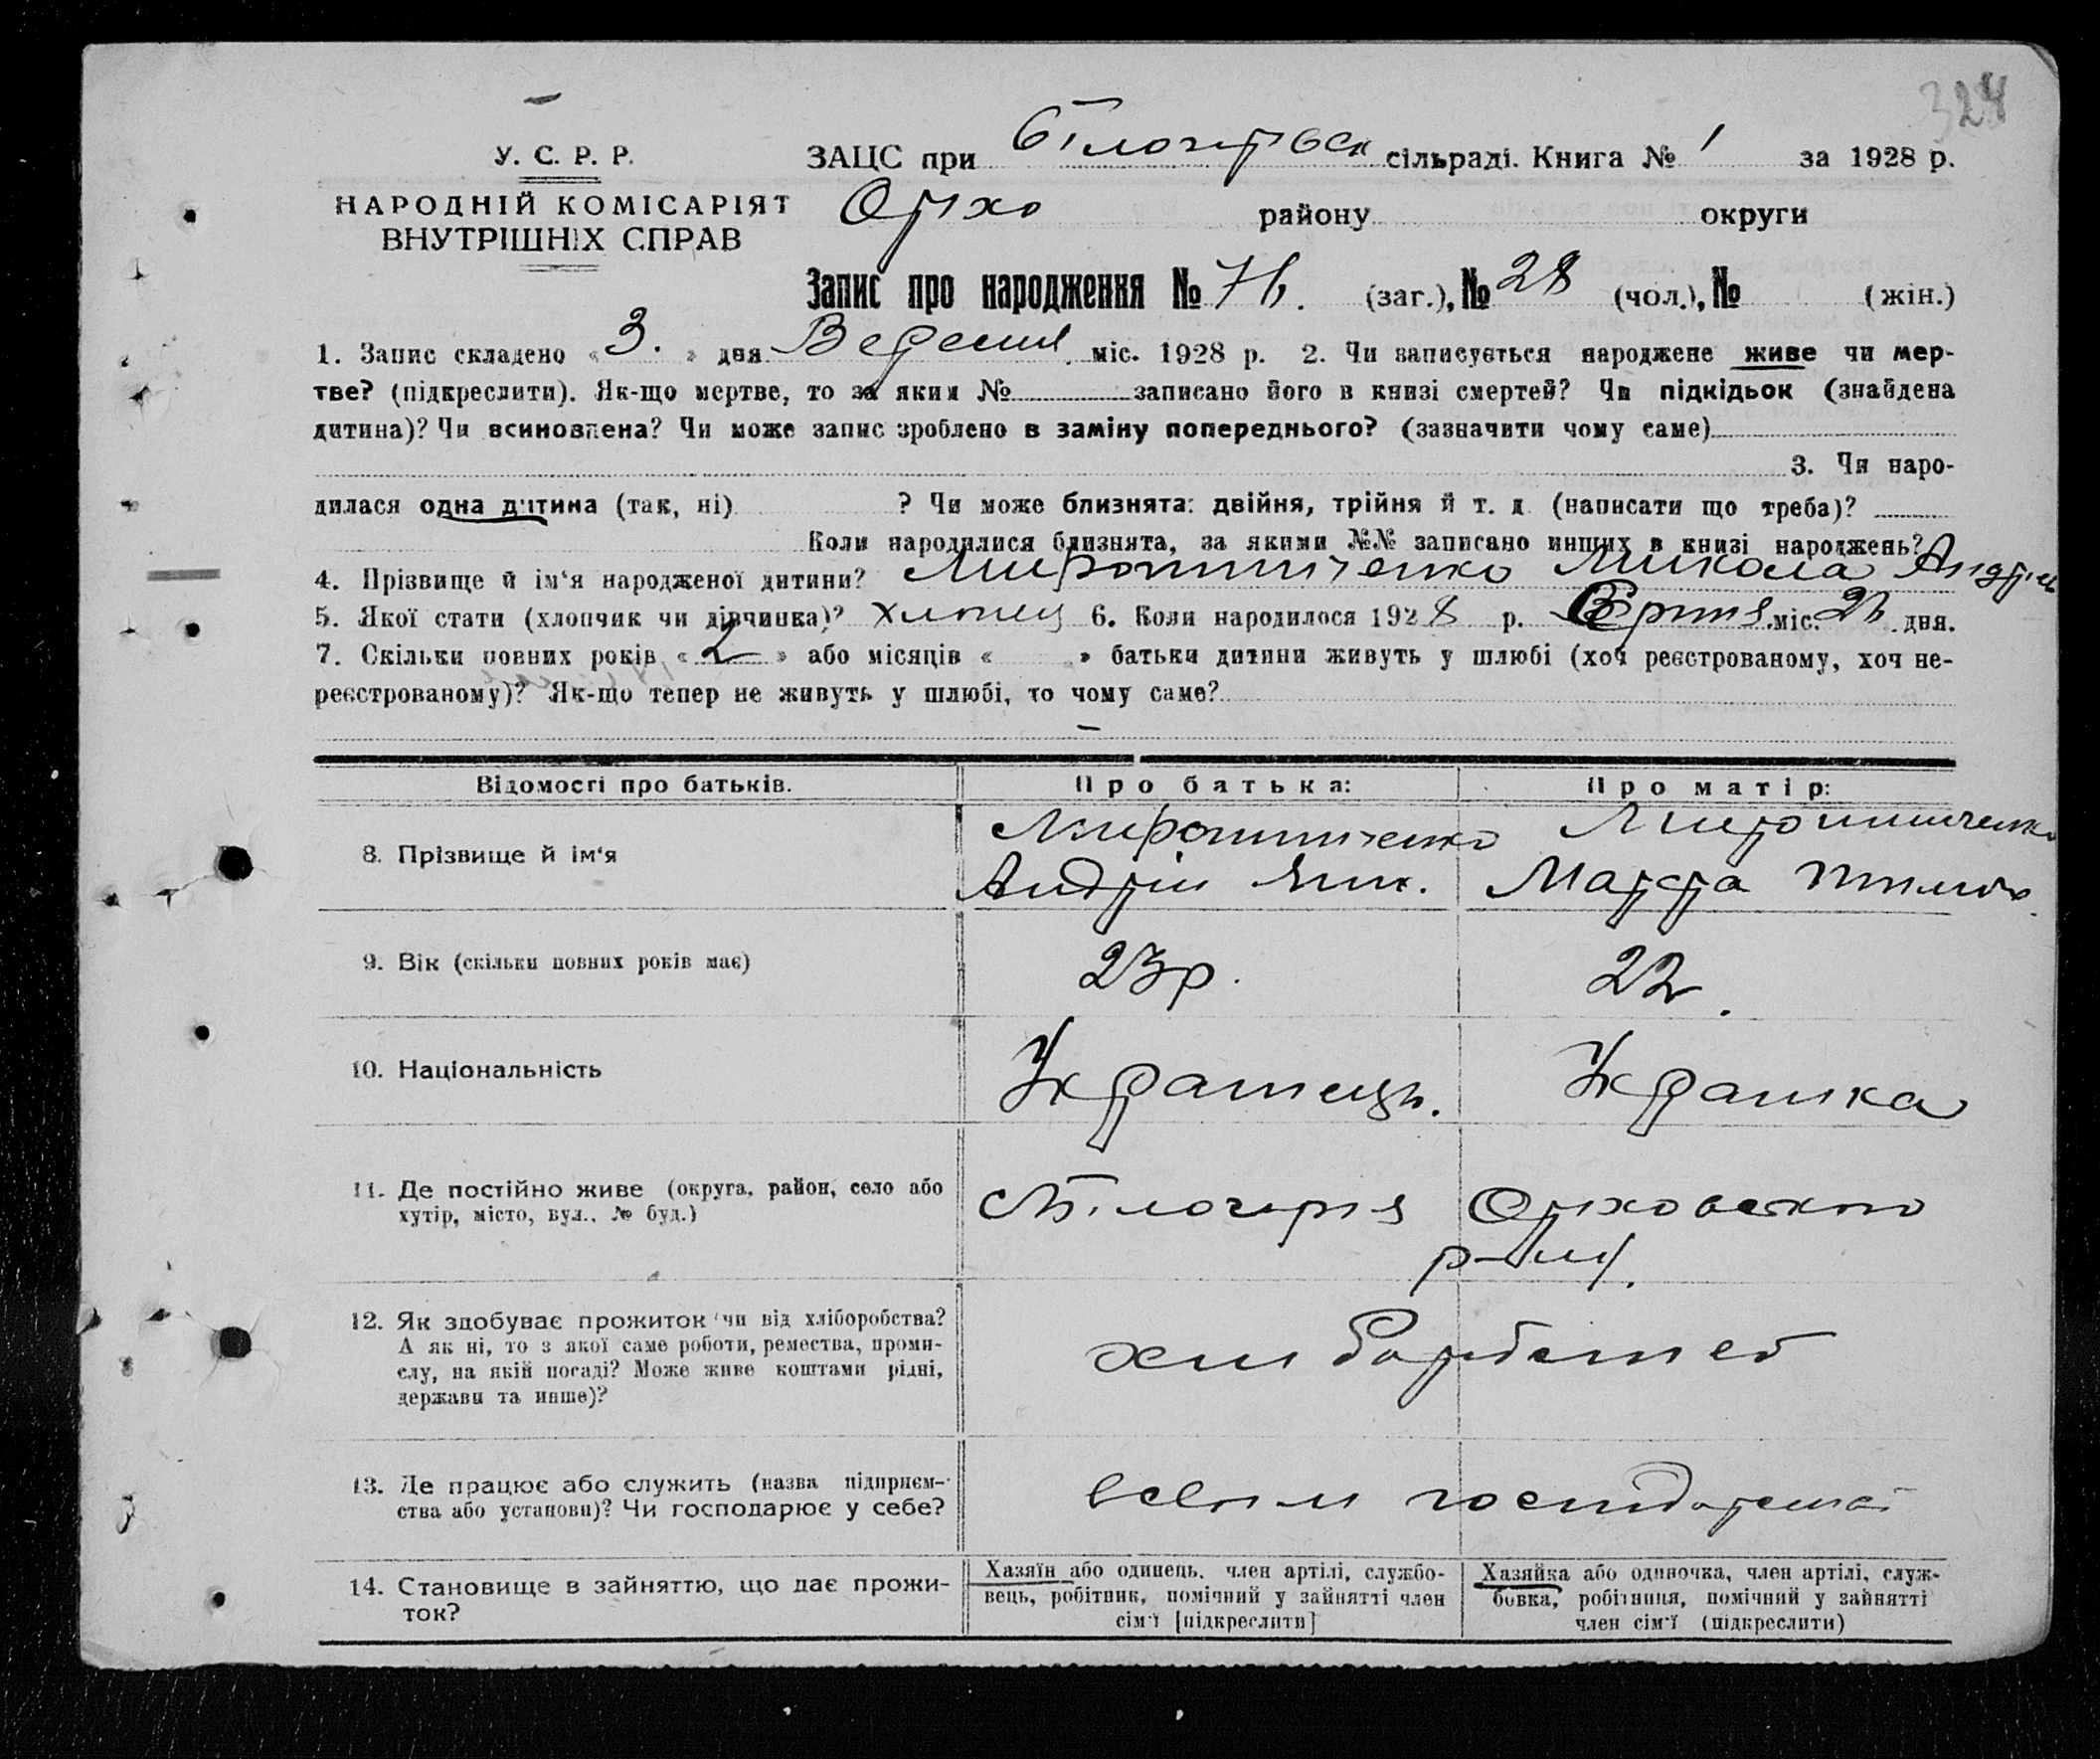 324
У. С. Р. Р.
НАРОДНІЙ КОМІСАРІЯТ
ВНУТРІШНІХ СПРАВ
ЗАЦС при Білогірськ сільраді. Книга № 1 за 1928 р.
Оріхо району округи
Запис про народження № (заг.), № 28 (чол.), № (жін.)
1. Запис складено « 3. » дня Вересня міс. 1928 р. 2. Чи записується народжене живе чи мер-
тве? (підкреслити). Як-що мертве, то за яким № записано його в книзі смертей? Чи підкідьок (знайдена
дитина)? Чи всиновлена? Чи може запис зроблено в заміну попереднього? (зазначити чому саме)
3. Чи наро-
дилася одна дитина (так, ні) ? Чи може близнята: двійня, трійня й т. д (написати що треба)?
Коли народилися близнята, за якими №№ записано инших в книзі народжень?
4. Прізвище й ім‘я народженої дитини? Мирошниченко Микола Андрі
5. Якої стати (хлопчик чи дівчинка)? хлопец 6. Коли народилося 1928 р. Серпня міс. дня.
7. Скільки повних років « 2 » або місяців « » батьки дитини живуть у шлюбі (хоч реєстрованому, хоч не-
реєстрованому)? Як-що тепер не живуть у шлюбі, то чому саме?
–
Відомості про батьків. Про батька: Про матір:
8. Прізвище й ім‘я Мирошниченко Мирошниченко
Андрій Марфа
9. Вік (скільки повних років має) 23р. 22.
10. Національність Украинець. Украинка
11. Де постійно живе (округа, район, село або
хутір, місто, вул., № буд.) Оріховского
р-ну.
12. Як здобуває прожиток чи від хліборобства?
А як ні, то з якої саме роботи, ремества, проми-
слу, на якій посаді? Може живе коштами рідні,
держави та инше)?
13. Де працює або служить (назва підприєм-
ства або установи)? Чи господарює у себе?
14. Становище в зайняттю, що дає прожи-
ток?
Хазяїн або одинець, член артілі, службо-
вець, робітник, помічний у зайнятті член
сім‘ї [підкреслити]
Хазяйка або одиночка, член артілі, служ-
бовка, робітниця, помічний у зайнятті
член сім‘ї (підкреслити)